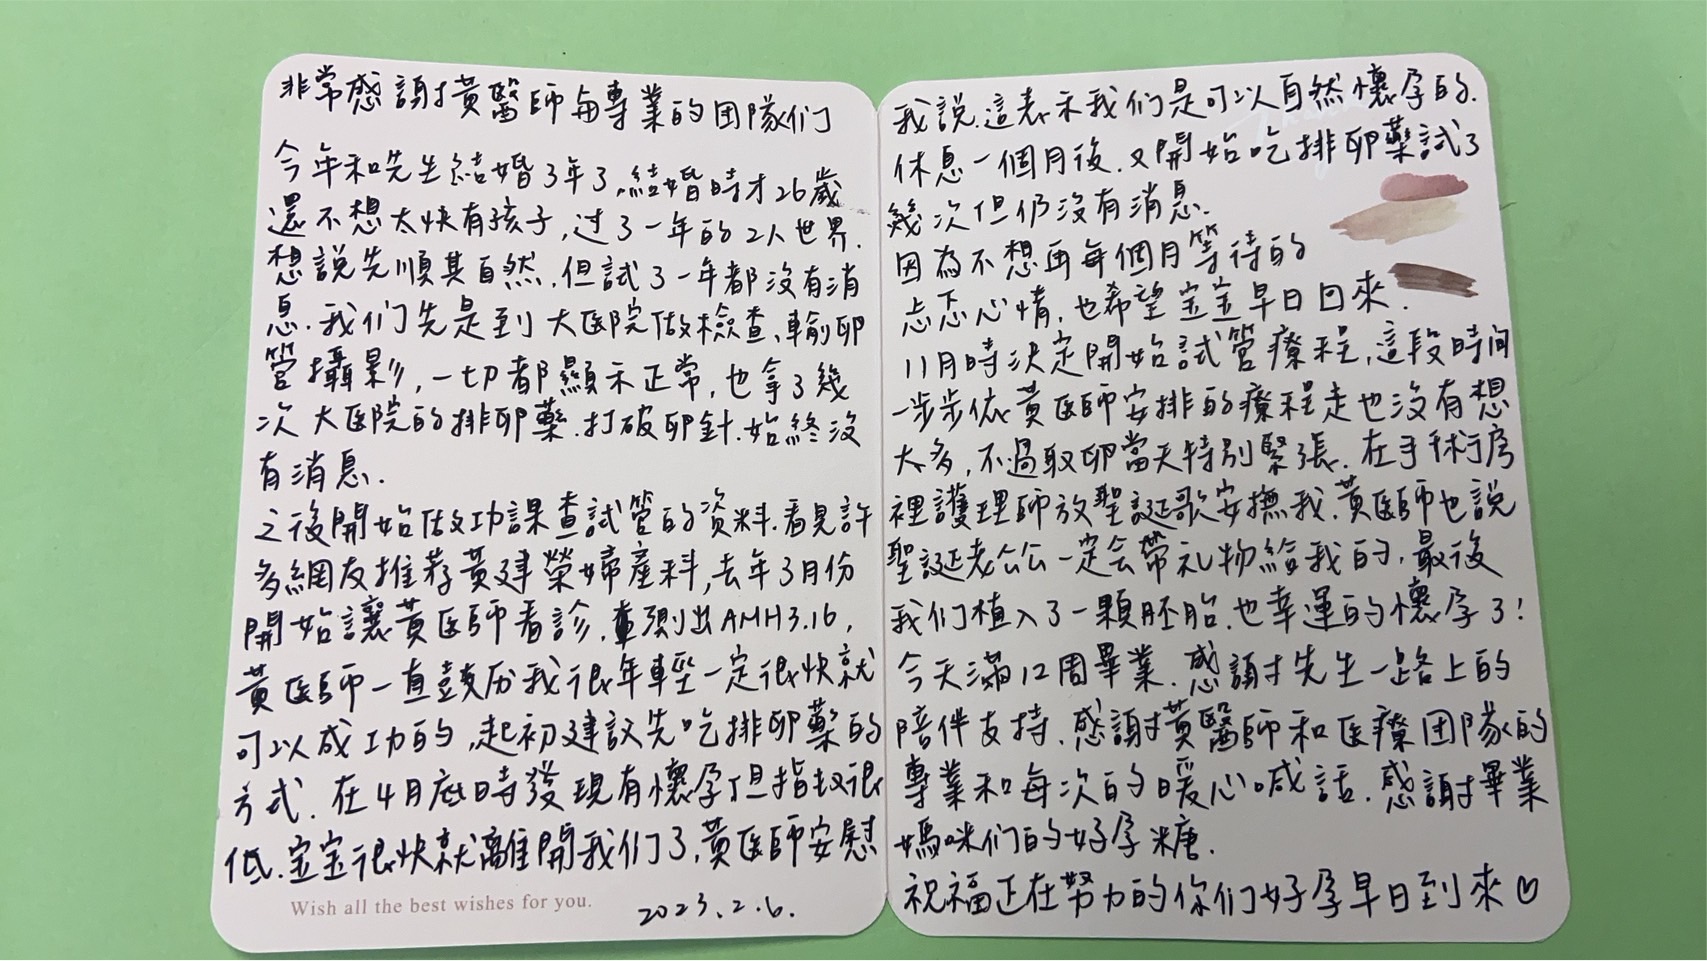 非常感謝黃醫師與專業的团隊们
今年和先生結婚3年了,結婚時才26歲
還不想太快有孩子,过了一年的2人世界.
想說先順其自然,但試了一年都沒有消
息.我们先是到大医院做檢查、輸卵
管攝影,一切都顯示正常,也拿了幾
次大医院的排卵藥.打破卵針.始終沒
有消息.
之後開始做功課查試管的資料.看見許
多網友推荐黃建榮婦產科,去年3月份
開始讓黃医師看診.查測出AMH3.16,
黃医師一直鼓励我很年輕一定很快就
可以成功的,起初建议先吃排卵藥的
方式.在4月底時發現有懷孕但指数很
低.宝宝很快就離開我们了,黃医師安慰
Wish all the best wishes for you.
2023.2.6.
我說.這表示我们是可以自然懷孕的.
休息一個月後.又開始吃排卵藥試了
幾次但仍沒有消息.
因為不想再每個月等待的
忐忑心情,也希望宝宝早日回來.
11月時決定開始試管療程,這段時间
一步步依黃医師安排的療程走也沒有想
太多,不過取卵當天特別緊張.在手術房
裡護理師放聖誕歌安撫我.黃医師也說
聖誕老公公一定会帶礼物給我的,最後
我们植入了一顆胚胎.也幸運的懷孕了!
今天滿12周畢業.感謝先生一路上的
陪伴支持.感謝黃醫師和医療团隊的
專業和每次的暖心喊話.感謝畢業
媽咪们的好孕糖.
祝福正在努力的你们好孕早日到來♡